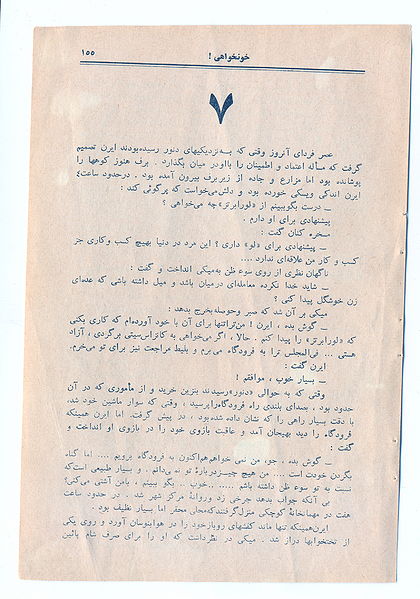 خونخواهی !
۱۵۵
۷
عصر فردای آنروز وقتی که به نزدیکیهای دنور رسیده بودند ایرن تصمیم
گرفت که مسأله اعتماد و اطمینان را با او در میان بگذارد . برف هنوز کوهها را
پوشانده بود اما مزارع و جاده از زیر برف بیرون آمده بود . در حدود ساعت ٤
ایرن اندکی ویسکی خورده بود و دلش می‌خواست که پرگوئی کند :
ـ درست بگو ببینم از «لورابرتز» چه می‌خواهی ؟
پیشنهادی برای او دارم .
مسخره کنان گفت :
ـ پیشنهادی برای «لو» داری ؟ این مرد در دنیا بهیچ کسب و کاری جز
کسب و کار من علاقه‌ای ندارد ....
ناگهان نظری از روی سوء ظن به میکی انداخت و گفت :
ـ شاید خدا نکرده معامله‌ای در میان باشد و میل داشته باشی که عده‌ای
زن خوشگل پیدا کنی ؟
میکی بر آن شد که صبر و حوصله بخرج بدهد :
ـ گوش بده ، ایرن ! من ترا تنها برای آن با خود آورده‌ام که کاری بکنی
که «لورابرتز» را پیدا کنم . حالا ، اگر می‌خواهی به کانزاس‌سیتی برگردی ، آزاد
هستی ... فی‌المجلس ترا به فرودگاه می‌برم و بلیط مراجعت نیز برای تو می‌خرم.
ایرن گفت :
ـ بسیار خوب ، موافقم !
وقتی که به حوالی «دنور» رسیدند بنزین خرید و از مأموری که در آن
حدود بود ، بصدای بلندی راه فرودگاه را پرسید ، وقتی که سوار ماشین خود شد،
با دقت بسیار راهی را که نشان داده شده بود ، در پیش گرفت. اما ایرن همینکه
فرودگاه را دید بهیجان آمد و عاقبت بازوی خود را در بازوی او انداخت و
گفت :
ـ گوش بده ، جو، من نمی خواهم هم‌اکنون به فرودگاه برویم .... اما گناه
بگردن خودت است .... من هیچ چیز درباره تو نه می‌دانم . و بسیار طبیعی است که
نسبت به تو سوء ظن داشته باشم ..... خوب .. بگو ببینم ، با من آشتی می‌کنی؟
بی آنکه جواب بدهد چرخی زد و روانهٔ مرکز شهر شد . در حدود ساعت
هفت در مهمانخانهٔ کوچکی منزل گرفتند که محلی محقر اما بسیار نظیف بود .
ایرن همینکه تنها ماند کفشهای روباز خود را در هوا بنوسان آورد و روی یکی
از تختخوابها دراز شد . میکی در نظر داشت که او را برای صرف شام پائین